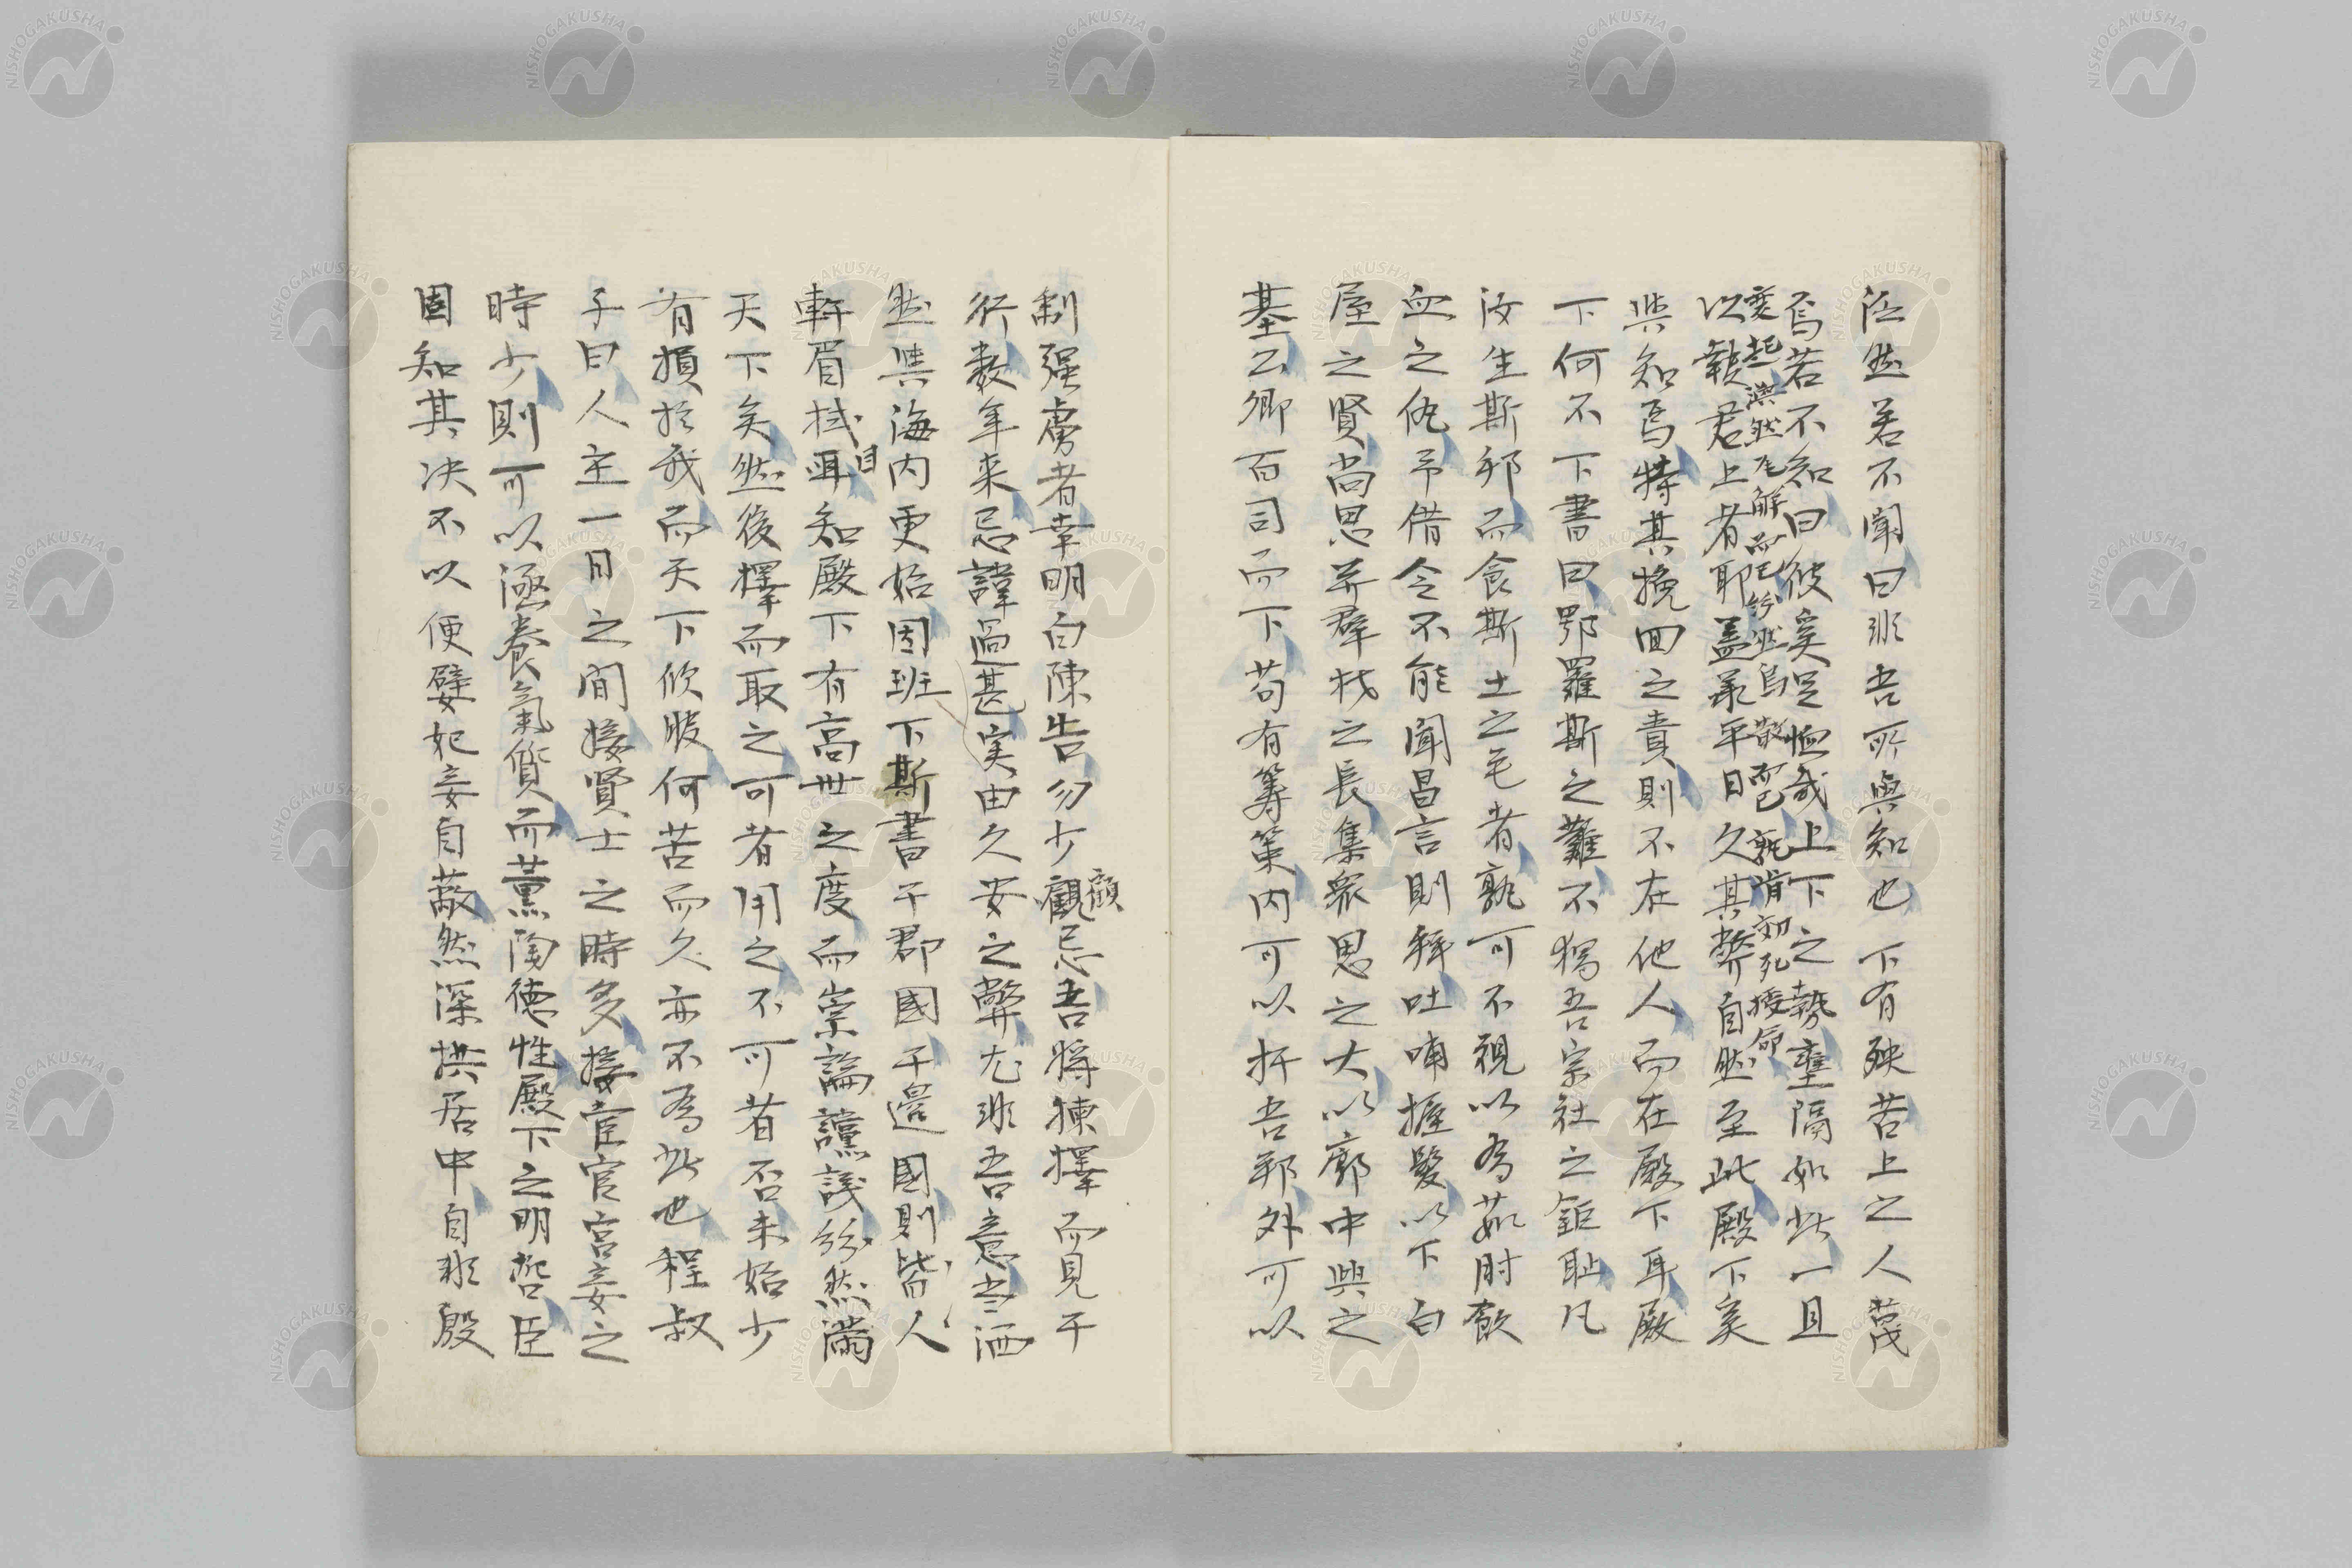 泛然若不聞曰非吾所與知也下有殃苦上之人蔑
焉若不知曰彼奚足恤哉上下之勢壅隔如此一旦
変起渙然瓦解而已紛然鳥散而已孰肯効死授命
以報君上者耶盖承平日久其弊自然至此殿下奚
與知焉特其挽回之責則不在他人而在殿下耳殿
下何不下書曰鄂羅斯之難不獨吾宗社之鉅恥凡
汝生斯邦而食斯土之毛者孰可不視以為茹肘飲
血之仇乎借令不能聞昌言則拜吐哺握髮以下白
屋之賢尚思并群材之長集衆思之大以廓中興之
基公卿百司而下苟有籌策内可以扞吾邦外可以
制强虜者幸明白陳告勿少觀忌吾將揀擇而見于
顧
行数年来忌諱過甚実由久安之弊尤非吾意当洒
然與海内更始因班下斯書于郡國于邊國則皆人
軒眉拭耳知殿下有高世之度而崇論讜議紛然満
目
天下矣然後擇而取之可者用之不可者否未始少
有損於我而天下悦服何苦而久亦不為此也程叔
子曰人主一日之間接賢士之時多接宦官宮妾之
時少則可以涵養氣質而薫陶德性殿下之明哲臣
固知其决不以便嬖妃妾自蔽然深拱居中自非殷